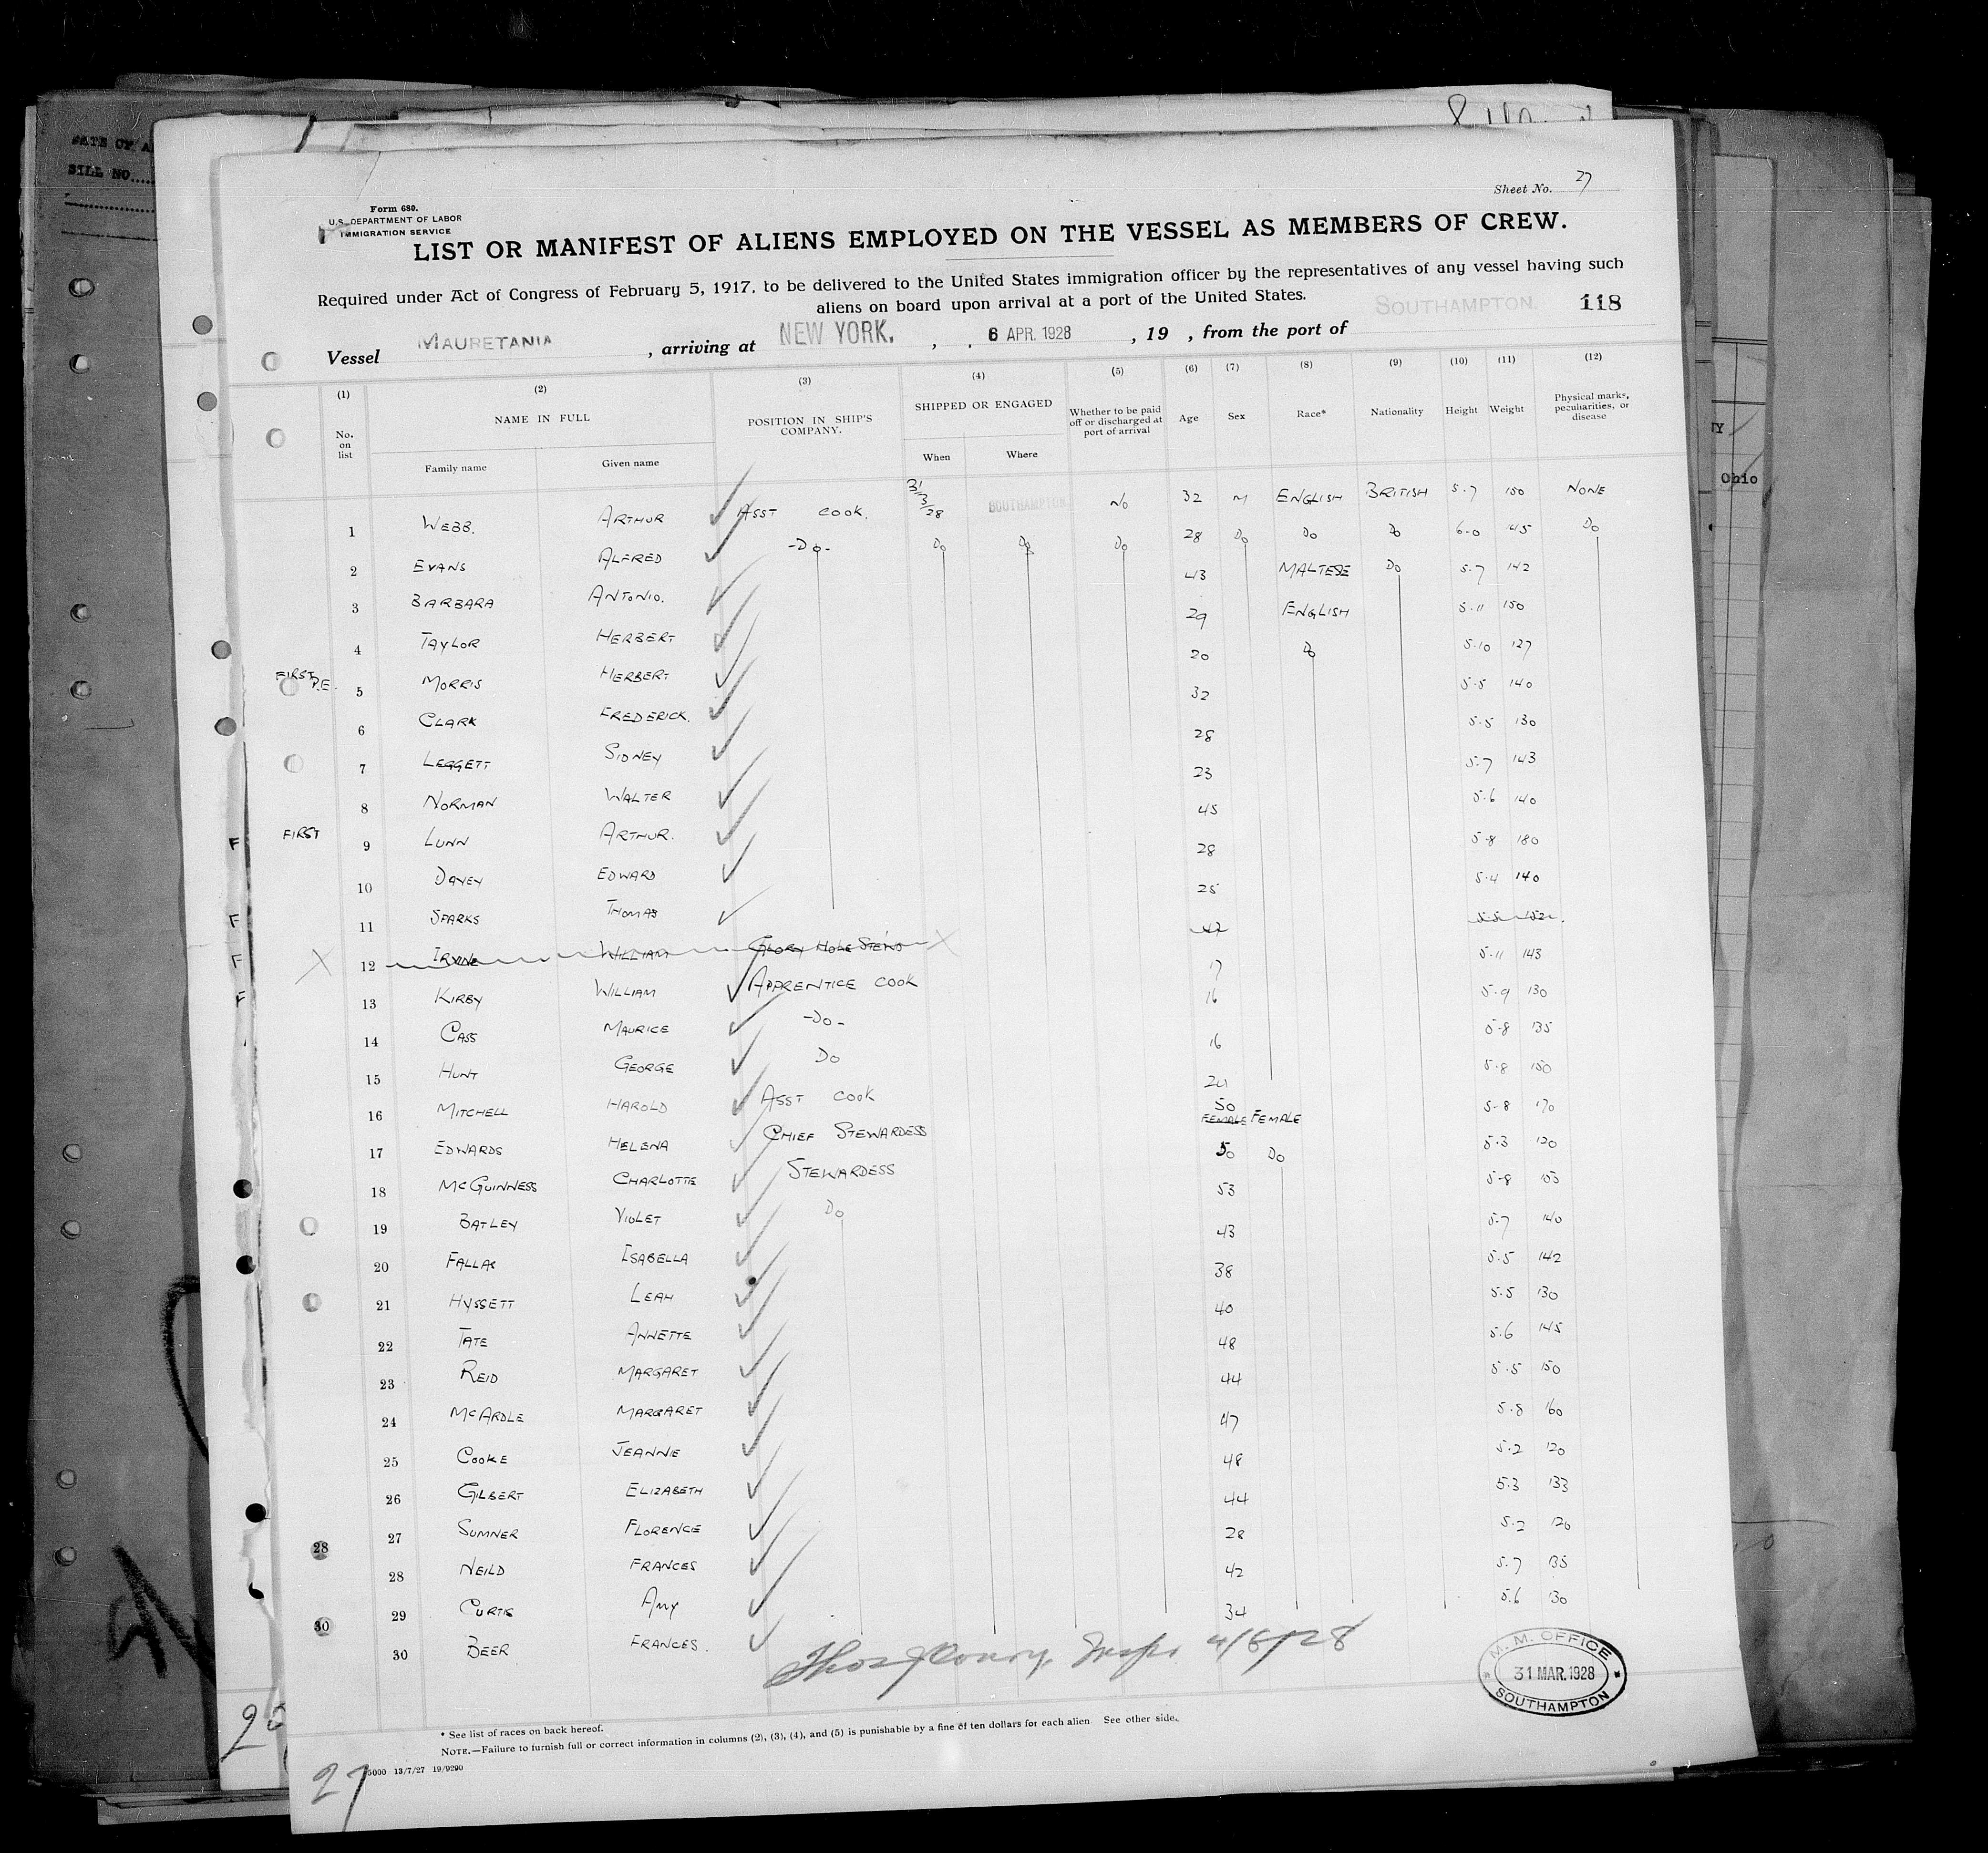 DATE OF A
BILL NO.....
Sheet No. 27
Form 680.
U.S. DEPARTMENT OF LABOR
IMMIGRATION SERVICE
LIST OR MANIFEST OF ALIENS EMPLOYED ON THE VESSEL AS MEMBERS OF CREW.
Required under Act of Congress of February 5, 1917, to be delivered to the United States immigration officer by the representatives of any vessel having such
aliens on board upon arrival at a port of the United States.
118
Vessel MAURETANIA, arriving at NEW YORK, 6 APR. 1928, 19 , from the port of SOUTHAMPTON.
(1) (2) (3) (4) (5) (6) (7) (8) (9) (10) (11) (12)
No. on list NAME IN FULL POSITION IN SHIP'S COMPANY. SHIPPED OR ENGAGED Whether to be paid off or discharged at port of arrival Age Sex Race* Nationality Height Weight Physical marks, peculiarities, or disease
Family name Given name When Where
1 WEBB. ARTHUR ASST COOK. 31/3/28 SOUTHAMPTON No 32 M ENGLISH BRITISH 5.7 150 NONE
2 EVANS ALFRED -Do- Do Do Do 28 Do Do Do 6-0 145 Do
3 BARBARA ANTONIO. 43 MALTESE Do 5.7 142
4 TAYLOR HERBERT 29 ENGLISH 5.11 150
FIRST P.E. 5 MORRIS HERBERT 20 Do 5.10 127
6 CLARK FREDERICK. 32 5.5 140
7 LEGGETT SIDNEY 28 5.5 130
8 NORMAN WALTER 23 5.7 143
F FIRST 9 LUNN ARTHUR. 45 5.6 140
10 DAVEY EDWARD 28 5-8 180
F 11 SPARKS THOMAS 25 5.4 140
F X 12 IRVINE WILLIAM GLORY HOLE STEWD X 42 5.5 152
F 13 KIRBY WILLIAM APPRENTICE COOK 17 5.11 143
14 CASS MAURICE -Do- 16 5.9 130
15 HUNT GEORGE Do 16 5-8 135
16 MITCHELL HAROLD ASST COOK 24 5.8 150
17 EDWARDS HELENA CHIEF STEWARDESS 50 FEMALE FEMALE 5-8 170
18 McGUINNESS CHARLOTTE STEWARDESS 50 Do 5.3 120
19 BATLEY VIOLET Do 53 5-8 155
20 FALLAS ISABELLA 43 5.7 140
21 HYSSETT LEAH 38 5.5 142
22 TATE ANNETTE 40 5.5 130
23 REID MARGARET 48 5.6 145
24 McARDLE MARGARET 44 5.5 150
25 COOKE JEANNIE 47 5.8 160
26 GILBERT ELIZABETH 48 5.2 120
27 SUMNER FLORENCE 44 5.3 133
28 28 NEILD FRANCES 28 5.2 126
29 CURTIS AMY 42 5.7 135
30 30 BEER FRANCES. 34 5.6 130
4/6/28
M. M. OFFICE
31 MAR. 1928
SOUTHAMPTON
* See list of races on back hereof.
NOTE.—Failure to furnish full or correct information in columns (2), (3), (4), and (5) is punishable by a fine of ten dollars for each alien See other side.
5000 13/7/27 19/9290
27
Ohio